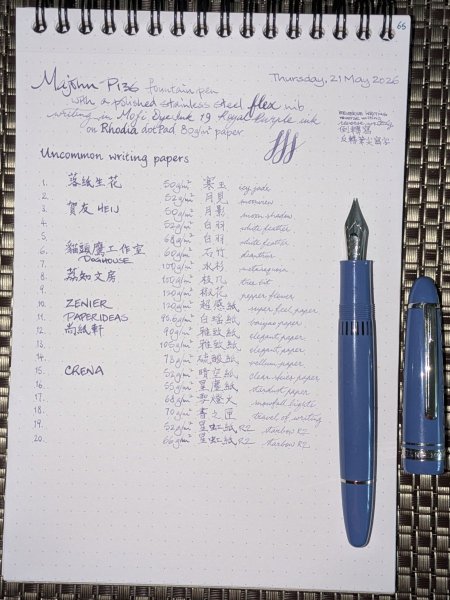 65
Thursday, 21 May 2026
Majohn P136 fountain pen
with a polished stainless steel flex nib
writing in Mofi Dye Ink 19 Royal Purple ink
on Rhodia dotPad 80g/m² paper
reverse writing
倒轉寫
反轉筆尖寫字
Uncommon writing papers
1. 落紙生花 50g/m² 寒玉 icy jade
2. 52g/m² 月見 moonview
3. 賀友 HEIJ 50g/m² 月影 moon shadow
4. 52g/m² 白羽 white feather
5. 68g/m² 白羽 white feather
6. 貓頭鷹工作室 60g/m² 石竹 dianthus
DOGHOUSE
7. 100g/m² 水杉 metasequoia
8. 荔知文房 100g/m² 枝几
9. 120g/m² 椒花 pepper flower
10. ZENIER 120g/m² 超感紙 super feel paper
11. PAPERIDEAS 白瑶紙 baiyao paper
12. 尚紙軒 90g/m² 雅致紙 elegant paper
13. 105g/m² 雅致紙 elegant paper
14. 78g/m² 硫酸紙 vellum paper
15. CRENA 52g/m² 晴空紙 clear skies paper
16. 55g/m² 星塵紙 stardust paper
17. 68g/m² 雪燈火 snowfall lights
18. 70g/m² 書之匣 travel of writing
19. 52g/m² 星虹紙 R2 starbow R2
20. 66g/m² 星虹紙 R2 starbow R2